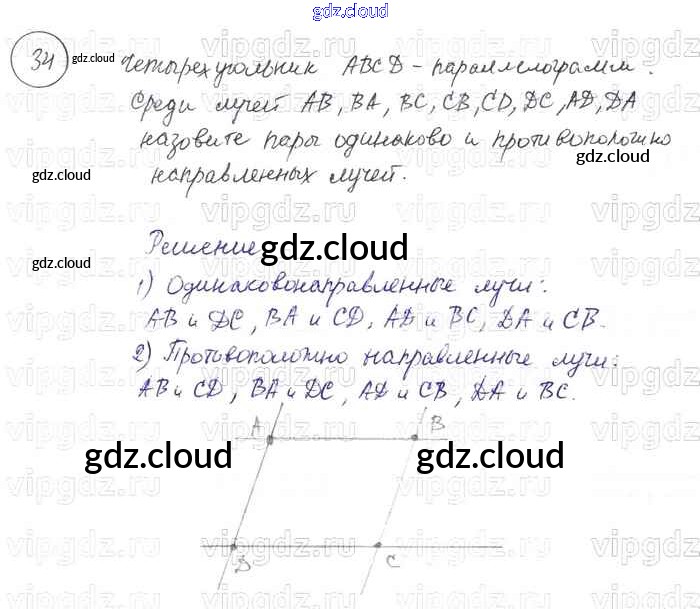 gdz.cloud
34 gdz.cloud Четырехугольник ABCD - параллелограмм.
Среди лучей AB, BA, BC, CB, CD, DC, AD, DA
назовите пары одинаково и противоположно
gdz.cloud
направленных лучей.
gdz.cloud
Решение
gdz.cloud
gdz.cloud
1) Одинаковонаправленные лучи:
AB и DC, BA и CD, AD и BC, DA и CB.
2) Противоположно направленные лучи:
AB и CD, BA и DC, AD и CB, DA и BC.
A B
gdz.cloud gdz.cloud
D C
vipgdz.ru